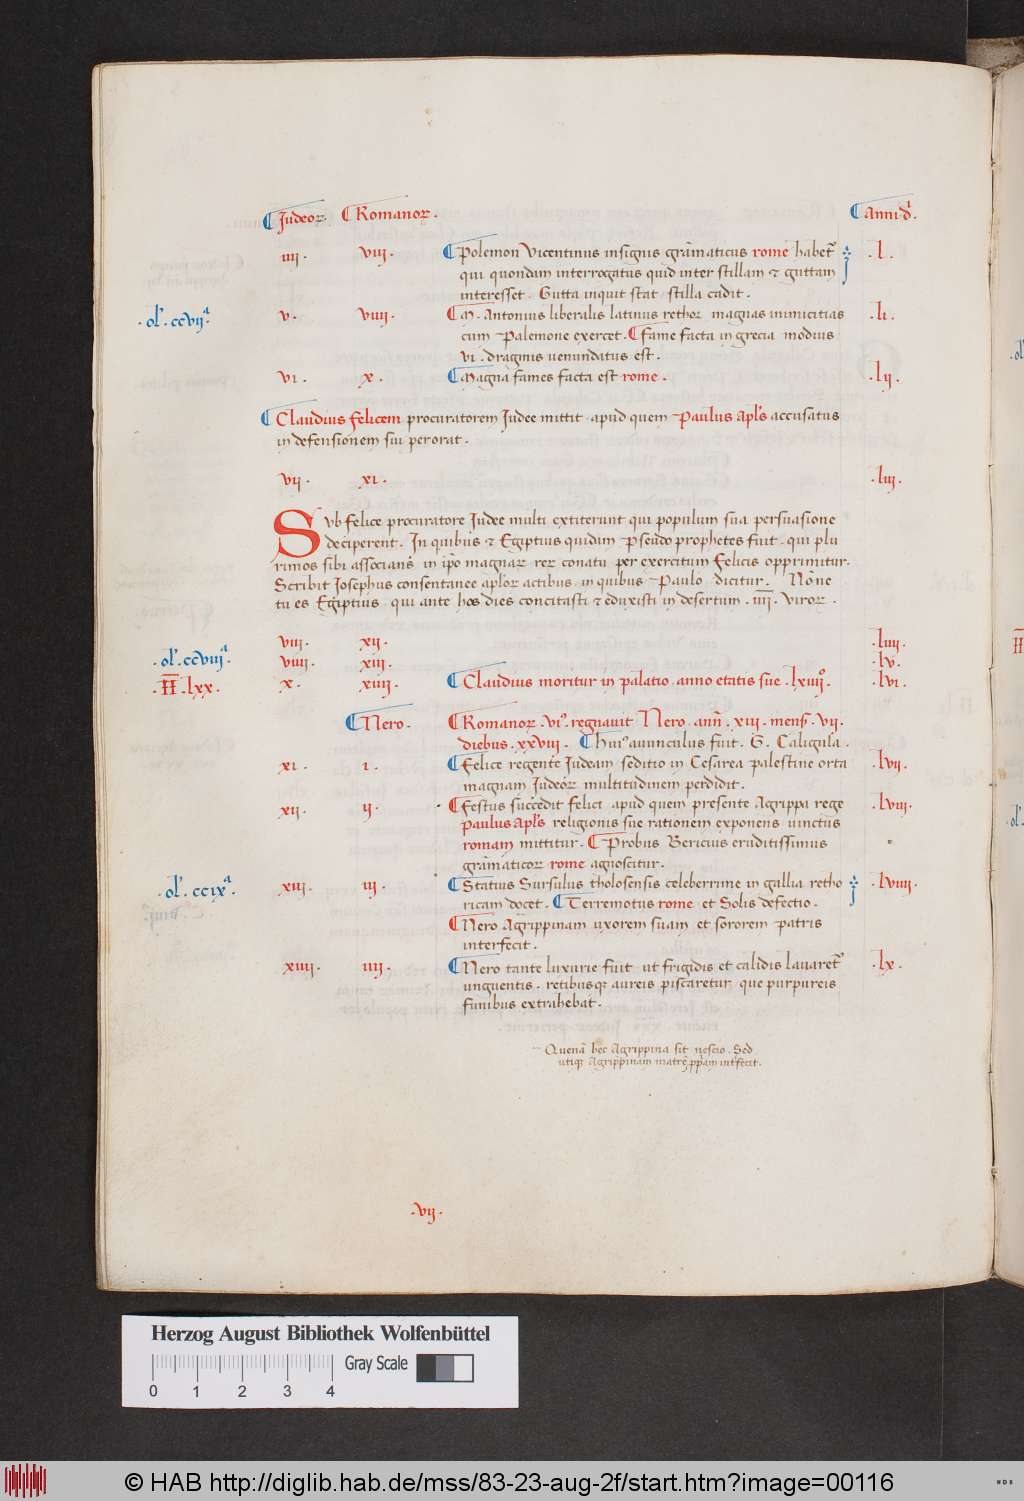 Judeoꝝ. Romanoꝝ. Anni dⁱ.
iiii. viii. Polemon Vicentinus insignis gram̃aticus rome habet᷑ .l.
qui quondam interrogatus quid inter stillam & guttam
interesset. Gutta inquit stat stilla cadit.
.ol'. ccviiª. v. viiii. M. Antonius liberalis latinus rethor magnas inimicitias .li.
cum Palemone exercet. Fame facta in grecia modius
vi. dragmis uenundatus est.
vi. x. Magna fames facta est rome. .lii.
Claudius felicem procuratorem Iudee mittit apud quem Paulus apl's accusatus
in defensionem sui perorat.
vii. xi. .liii.
Svb felice procuratore Iudee multi extiterunt qui populum sua persuasione
deciperent. In quibus & Egiptius quidam Pseudo prophetes fuit. qui plu
rimos sibi associans in ip̃o magnaꝝ reꝝ conatu per exercitum Felicis opprimitur.
Scribit Iosephus consentanee apl'oꝝ actibus in quibus Paulo dicitur. Nonne
tu es Egiptius qui ante hos dies concitasti & eduxisti in desertum .iiii. viroꝝ.
viii. xii. .liiii.
.ol'. ccviiiª. viiii. xiii. .lv.
.H. lxx. x. xiiii. Claudius moritur in palatio anno etatis sue .lxiiiiº. .lvi.
Nero. Romanoꝝ .viº. regnauit Nero ann̄. xiii. mens̄. vii.
diebus .xxviii. Huiꝰ auunculus fuit .G. Caligula.
xi. i. Felice regente Iudeam seditio in Cesarea palestine orta .lvii.
magnam Iudeoꝝ multitudinem perdidit.
xii. ii. Festus succedit felici apud quem presente Agrippa rege .lviii.
paulus apl's religionis sue rationem exponens uinctus
romam mittitur. Probus Bericius eruditissimus
gram̃aticoꝝ rome agnoscitur.
.ol'. ccixª. xiii. iii. Statius Sursulus tholosensis celeberrime in gallia retho .lviiii.
ricam docet. Terremotus rome et Solis defectio.
Nero Agrippinam uxorem suam et sororem patris
interfecit.
xiiii. iiii. Nero tante luxurie fuit ut frigidis et calidis lauaret᷑ .lx.
unguentis. retibusqꝫ aureis piscaretur que purpureis
funibus extrahebat.
Quenã hec Agrippina sit nescio. Sed
utiqꝫ Agrippinam matrẽ p̱p̃am int᷑fecit.
.vii.
Herzog August Bibliothek Wolfenbüttel
Gray Scale
0 1 2 3 4
© HAB http://diglib.hab.de/mss/83-23-aug-2f/start.htm?image=00116